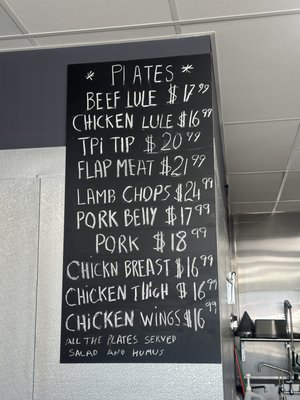 * PLATES *
BEEF LULE $17.99
CHICKEN LULE $16.99
TPi TIP $20.99
FLAP MEAT $21.99
LAMB CHOPS $24.99
PORK BELLY $17.99
PORK $18.99
CHICKN BREAST $16.99
CHICKEN THIGH $16.99
CHICKEN WINGS $16.99
ALL THE PLATES SERVED
SALAD AND HUMUS